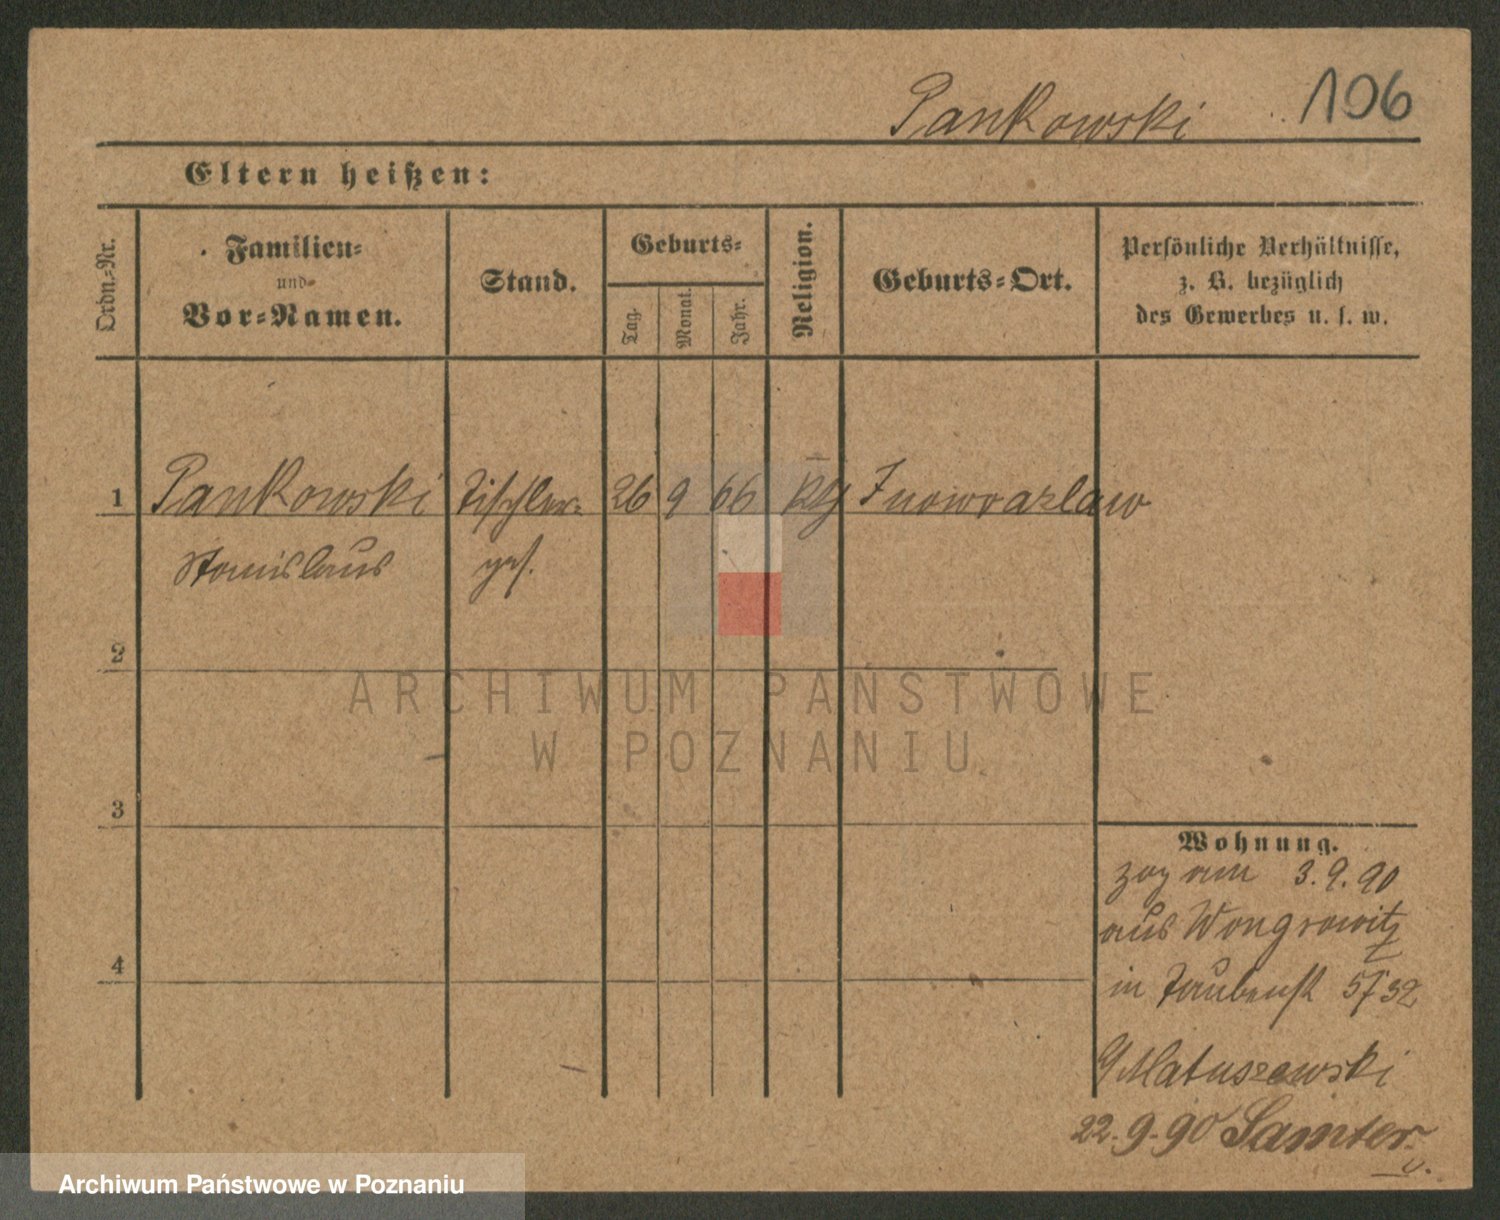 Pankowski 106
Eltern heißen:
Ordn.-Nr.
Familien-
und
Vor-Namen.
Stand.
Geburts-
Tag.
Monat.
Jahr.
Religion.
Geburts-Ort.
Persönliche Verhältnisse,
z. B. bezüglich
des Gewerbes u. s. w.
1 Pankowski Tischler- 26 9 66 Inowrazlaw
Stanislaus ges.
2
3
4
Wohnung.
zog am 3.9.90
aus Wongrowitz
in Taubenst
Matuszewski
22.9.90 Samter
ARCHIWUM PAŃSTWOWE
W POZNANIU
Archiwum Państwowe w Poznaniu